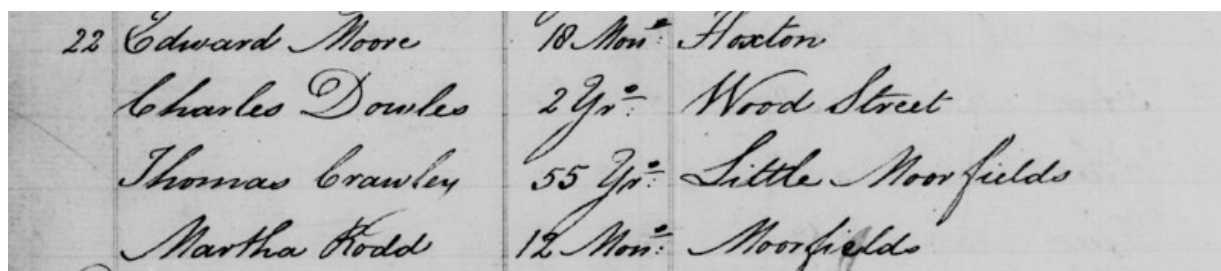 22 Edward Moore 18 Mons. Hoxton
Charles Dowles 2 Yrs. Wood Street
Thomas Crawley 55 Yrs. Little Moorfields
Martha Rodd 12 Mons. Moorfields